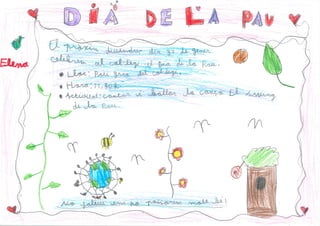 DIA DE LA PAU
Elena
El proxim divendres dia 31 de gener
celebrem al col·legi el Dia de la Pau.
• Lloc: Pati gran del col·legi.
• Hora: 11.30h.
• Activitat: cantar i ballar la cançó El
de la Pau.
No falteu o passareu molt bé!